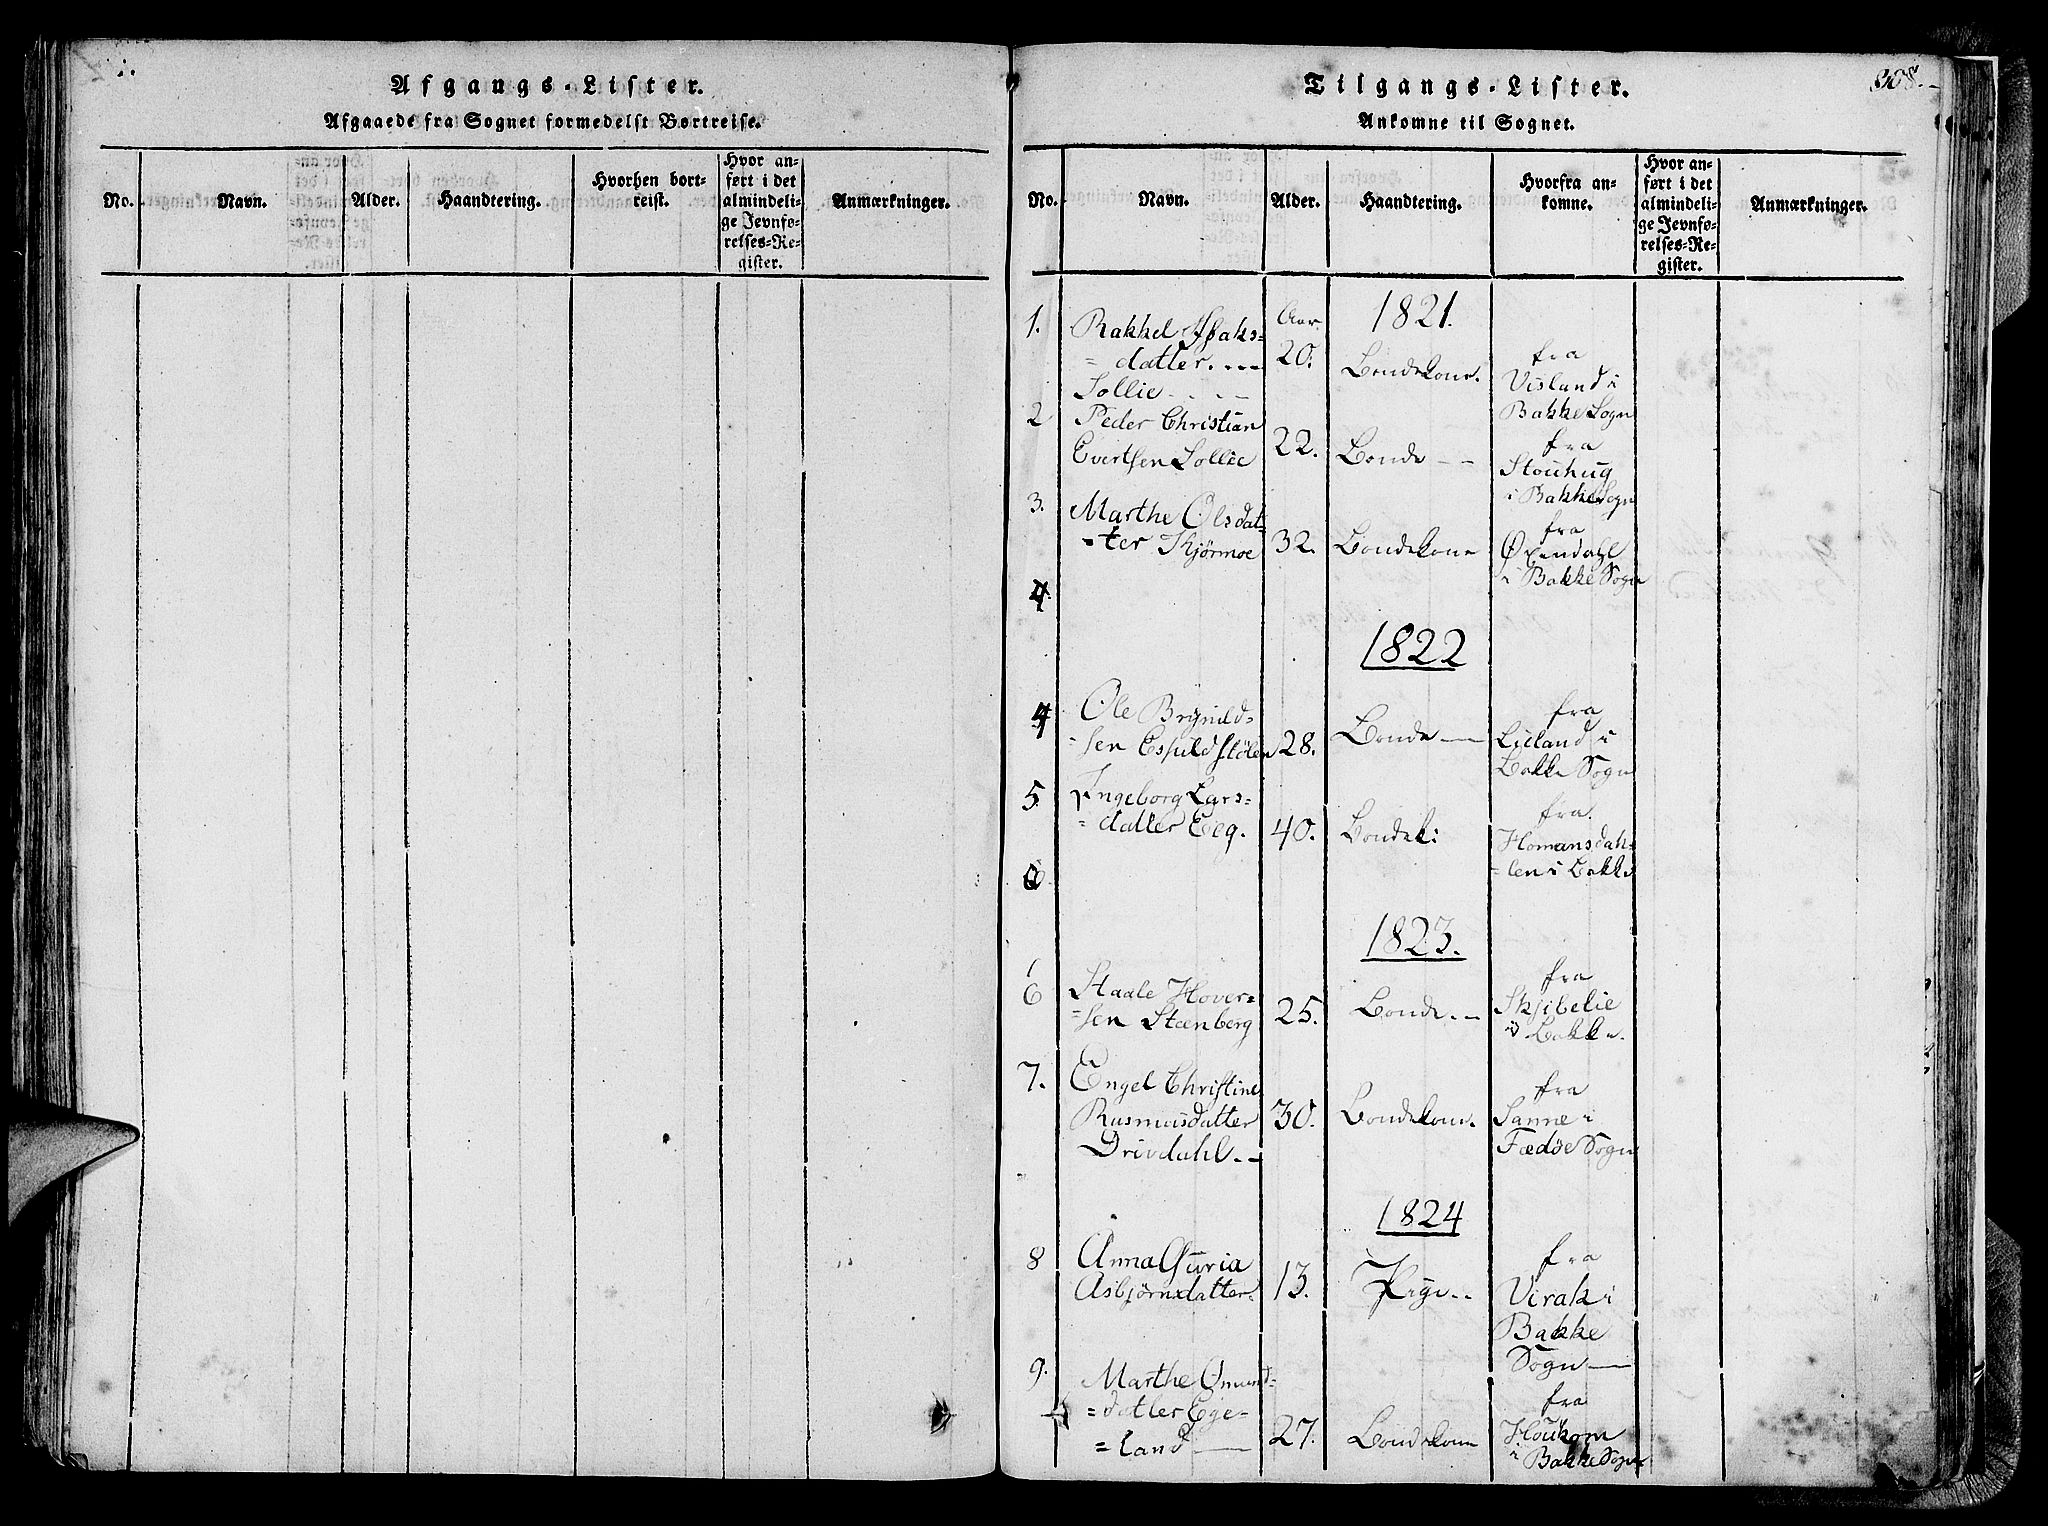 Afgangs-Lister.
Afgaaede fra Sognet formedelst Bortreise.
No.
Navn.
Alder.
Haandtering.
Hvorhen bort-
reist.
Hvor an-
ført i det
almindeli-
ge Jevnfø-
relses-Re-
gister.
Anmærkninger.
Tilgangs-Lister.
308.
Ankomne til Sognet.
No.
Navn.
Alder.
Haandtering.
Hvorfra an-
komne.
Hvor an-
ført i det
almindeli-
ge Jevnfø-
relses-Re-
gister.
Anmærkninger.
1821.
1.
Rakkel Isaks-
datter.
Sollie
Aar.
20.
Bondekone.
fra
Visland i
Bakke Sogn
2
Peder Christian
Evertsen Sollie
22.
Bonde
fra
Stouhug
i Bakke Sogn
3.
Marthe Olsdat-
ter Skjørmoe
32.
Bondekone
fra
Øxendahl
i Bakke Sogn
4
1822
4
Ole Brynild-
sen Espildstølen
28.
Bonde
fra
Lieland i
Bakke Sogn
5
Ingeborg Lars-
datter Eeg.
40.
Bondek:
fra
Homansdah-
len i Bakke
6
1823.
6
Staale Hover-
sen Steenberg
25.
Bonde
fra
Skjibelie
i Bakke.
7.
Engel Christine
Rasmusdatter
Drivdahl
30.
Bondekone.
fra
Sanne i
Fædøe Sogn
1824
8
Anna Guria
Asbjørnsdatter
13.
Pige
fra
Virak i
Bakke
Sogn
9.
Marthe Omund-
datter Ege-
land
27.
Bondekone
fra
Houkom
i Bakke Sogn